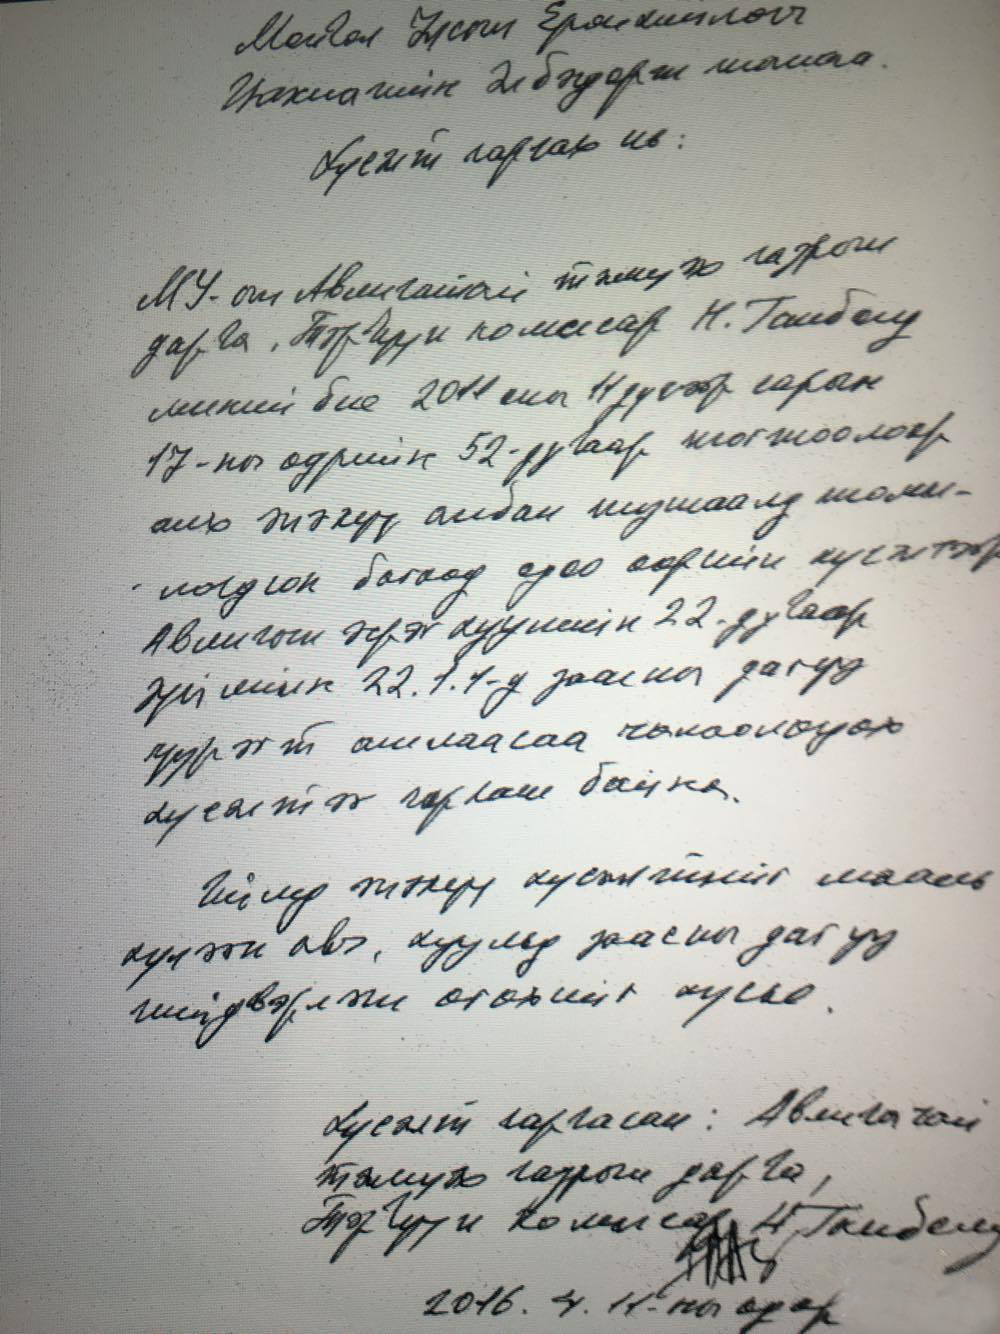 Монгол Улсын Ерөнхийлөгч
Цахиагийн Элбэгдорж танаа.
Хүсэлт гаргах нь:
МУ-ын Авлигатай тэмцэх газрын
дарга, Тэргүүн комиссар Н. Ганболд
миний бие 2011 оны 11 дүгээр сарын
17-ны өдрийн 52-дугаар тогтоолоор
энэхүү албан тушаалд томи-
логдсон бөгөөд одоо өөрийн хүсэлтээр
Авлигын эсрэг хуулийн 22-дугаар
зүйлийн 22.1.1-д заасны дагуу
үүрэгт ажлаасаа чөлөөлөгдөх
хүсэлтэй гаргаж байна.
Иймд энэхүү хүсэлтийг маань
хүлээн авч, хуульд заасны дагуу
шийдвэрлэж өгөхийг хүсье.
Хүсэлт гаргасан: Авлигатай
тэмцэх газрын дарга,
Тэргүүн комиссар Н. Ганболд
2016. 4. 11-ны өдөр